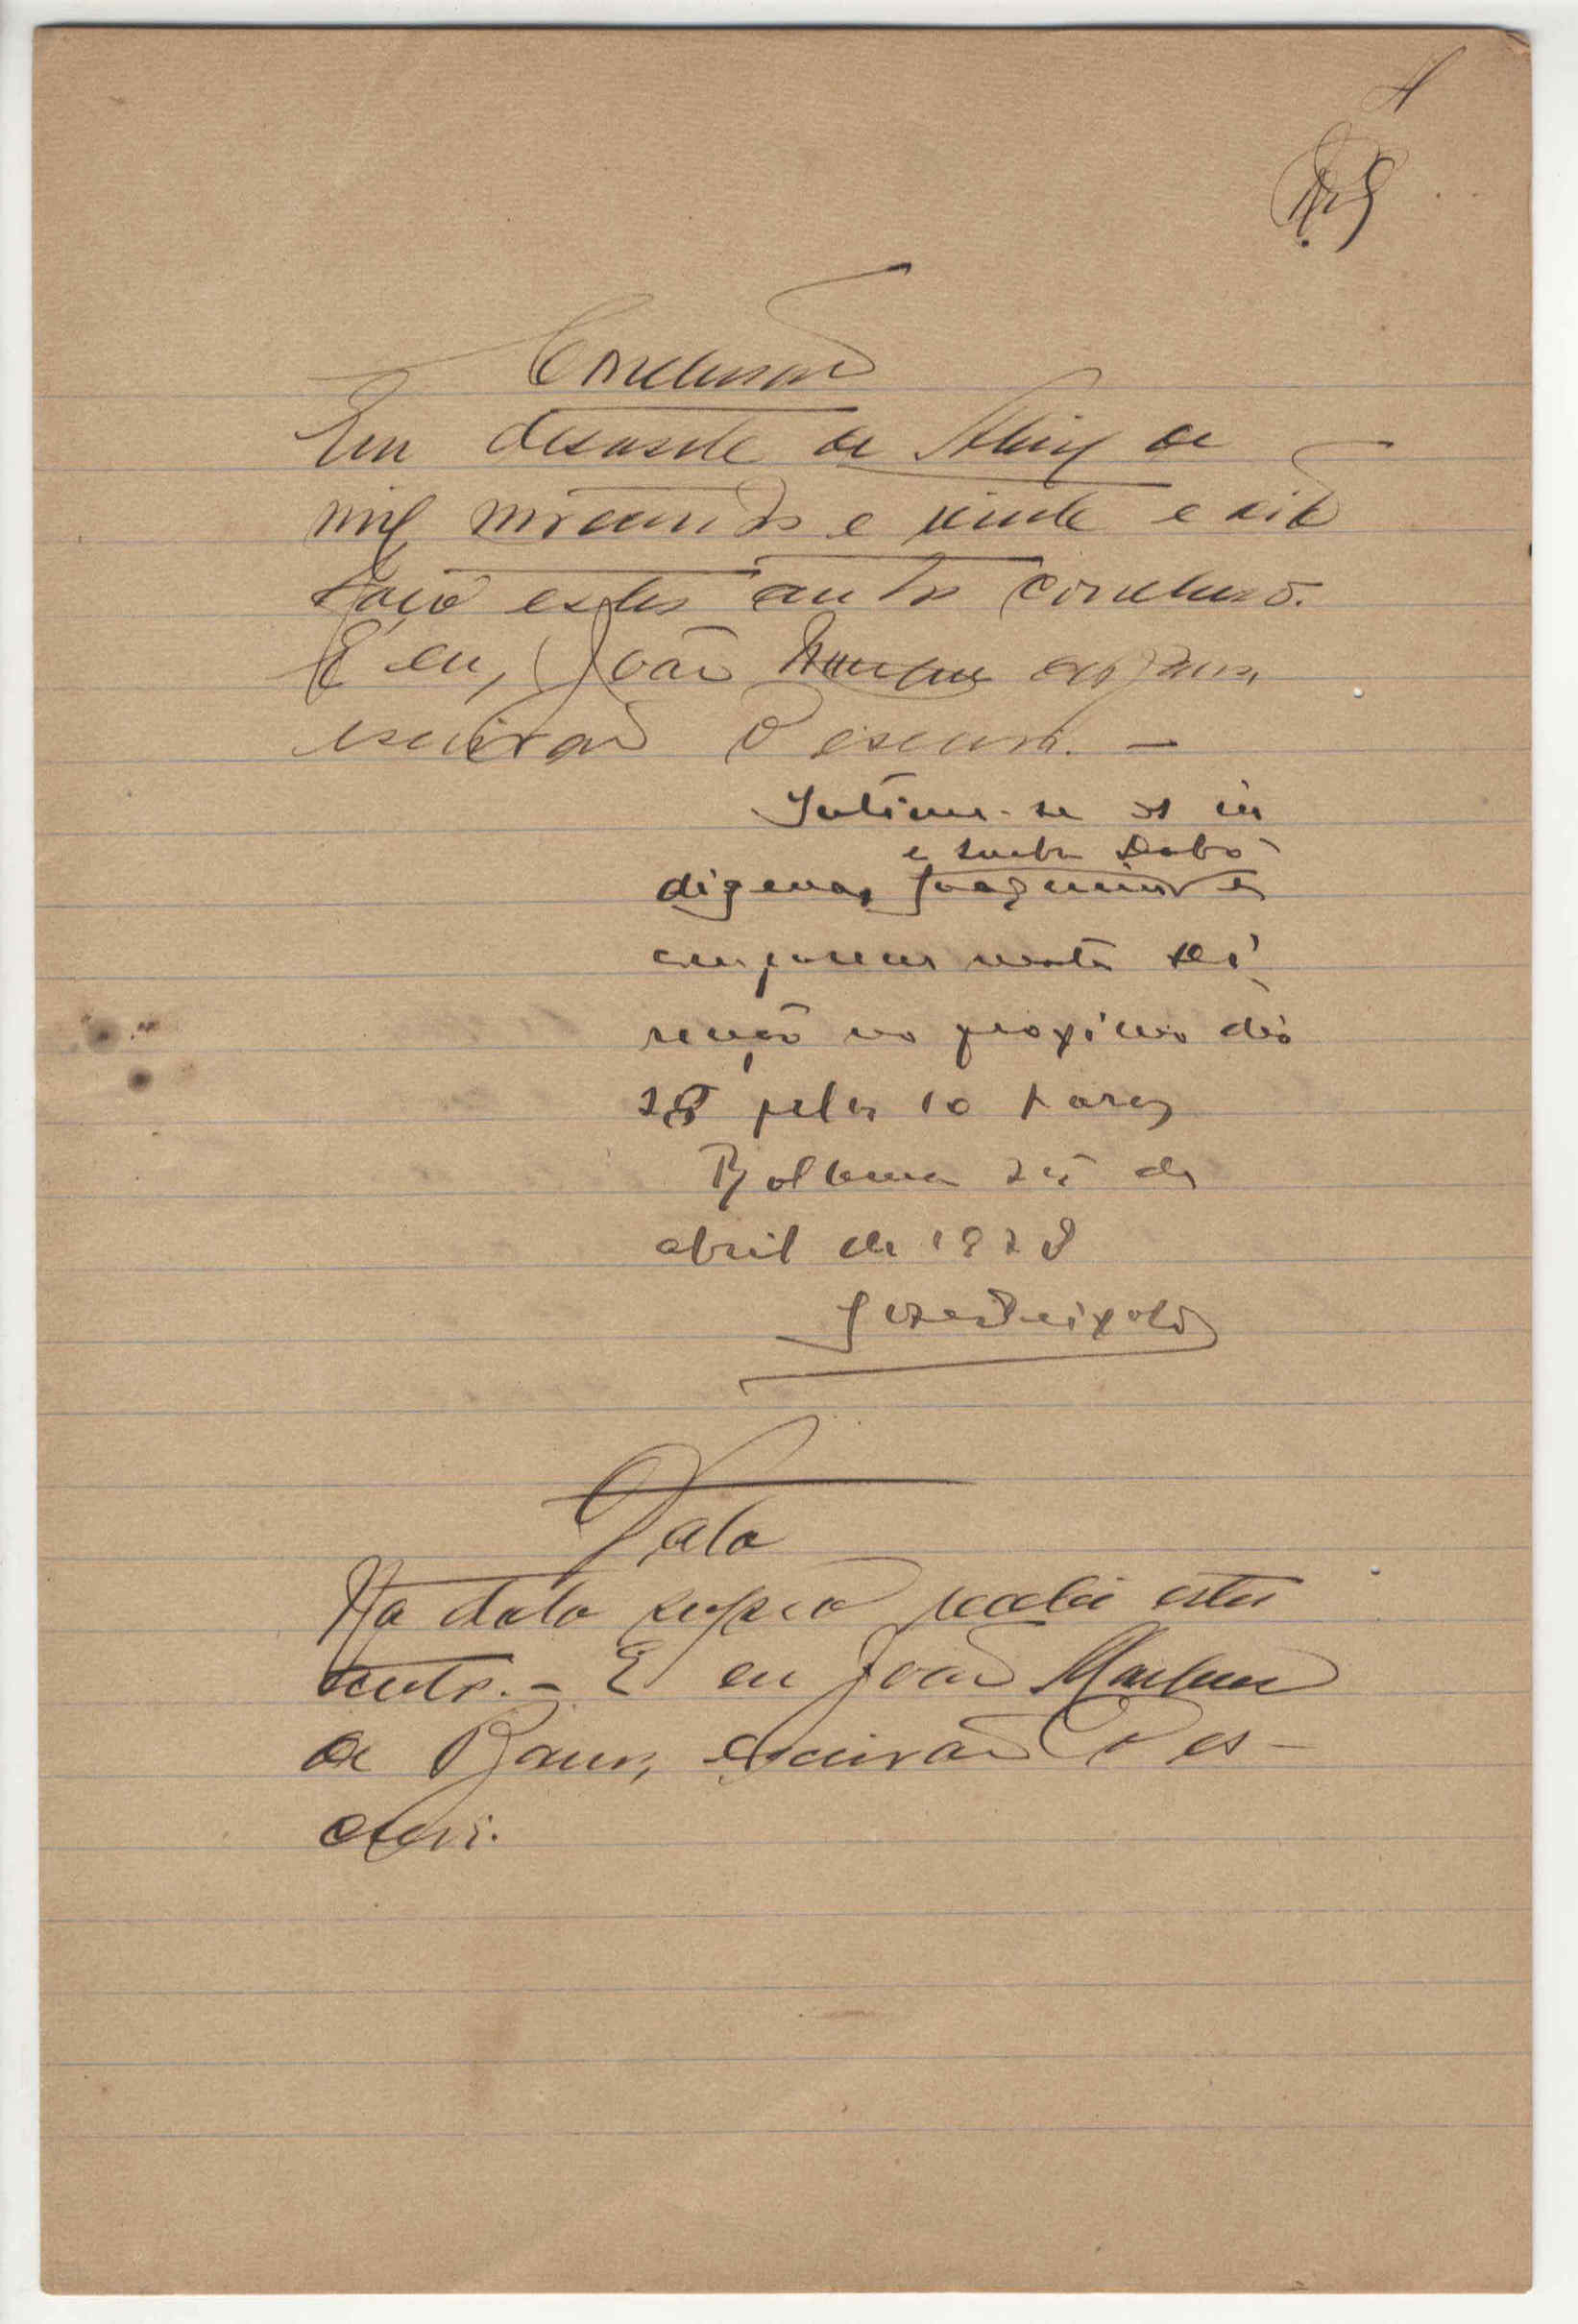 4
Conclusão
Em desasete de Abril de
mil novecentos e vinte e oito
faço estes autos conclusos.
E eu, João Marques de Barros,
escrivão o escrevi. —
Intime-se os in
e
digenas Joaquim e
comparecer nesta
no proximo dia
28 pelas 10 horas
Bolama de
abril de 1928
Data
Na data supra recebi estes
autos. - E eu João Marques
de Barros, escrivão o es-
crevi.